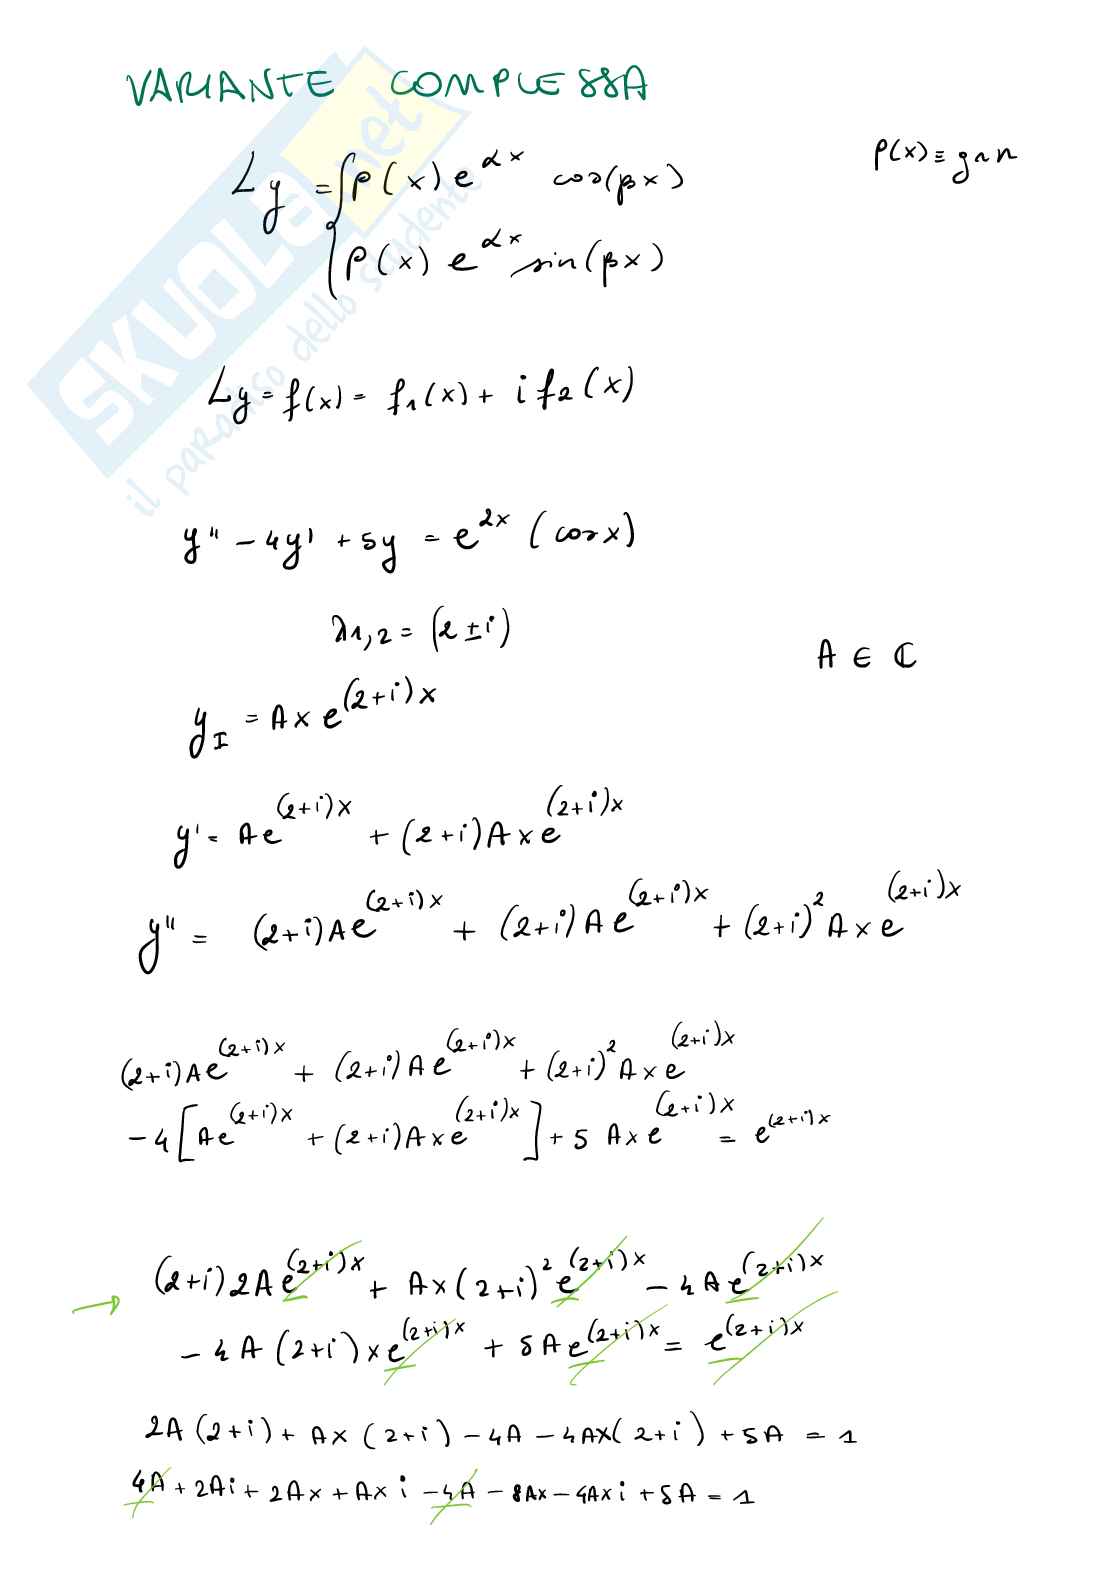 VARIANTE COMPLESSA
Ly = { P(x) e^{αx} cos(βx)
P(x) ≡ gr n
{ P(x) e^{αx} sin(βx)
Ly = f(x) = f₁(x) + i f₂(x)
y'' - 4y' + 5y = e^{2x} (cos x)
λ1,2 = (2 ± i)
A ∈ ℂ
y_I = A x e^{(2+i)x}
y' = A e^{(2+i)x} + (2+i) A x e^{(2+i)x}
y'' = (2+i) A e^{(2+i)x} + (2+i) A e^{(2+i)x} + (2+i)² A x e^{(2+i)x}
(2+i) A e^{(2+i)x} + (2+i) A e^{(2+i)x} + (2+i)² A x e^{(2+i)x}
- 4 [ A e^{(2+i)x} + (2+i) A x e^{(2+i)x} ] + 5 A x e^{(2+i)x} = e^{(2+i)x}
→ (2+i) 2A e^{(2+i)x} + A x (2+i)² e^{(2+i)x} - 4 A e^{(2+i)x}
- 4 A (2+i) x e^{(2+i)x} + 5 A e^{(2+i)x} = e^{(2+i)x}
2A (2+i) + A x (2+i) - 4A - 4Ax (2+i) + 5A = 1
4A + 2Ai + 2Ax + Ax i - 4A - 8Ax - 4Ax i + 5A = 1
SKUOLA.net
il paradiso dello studente